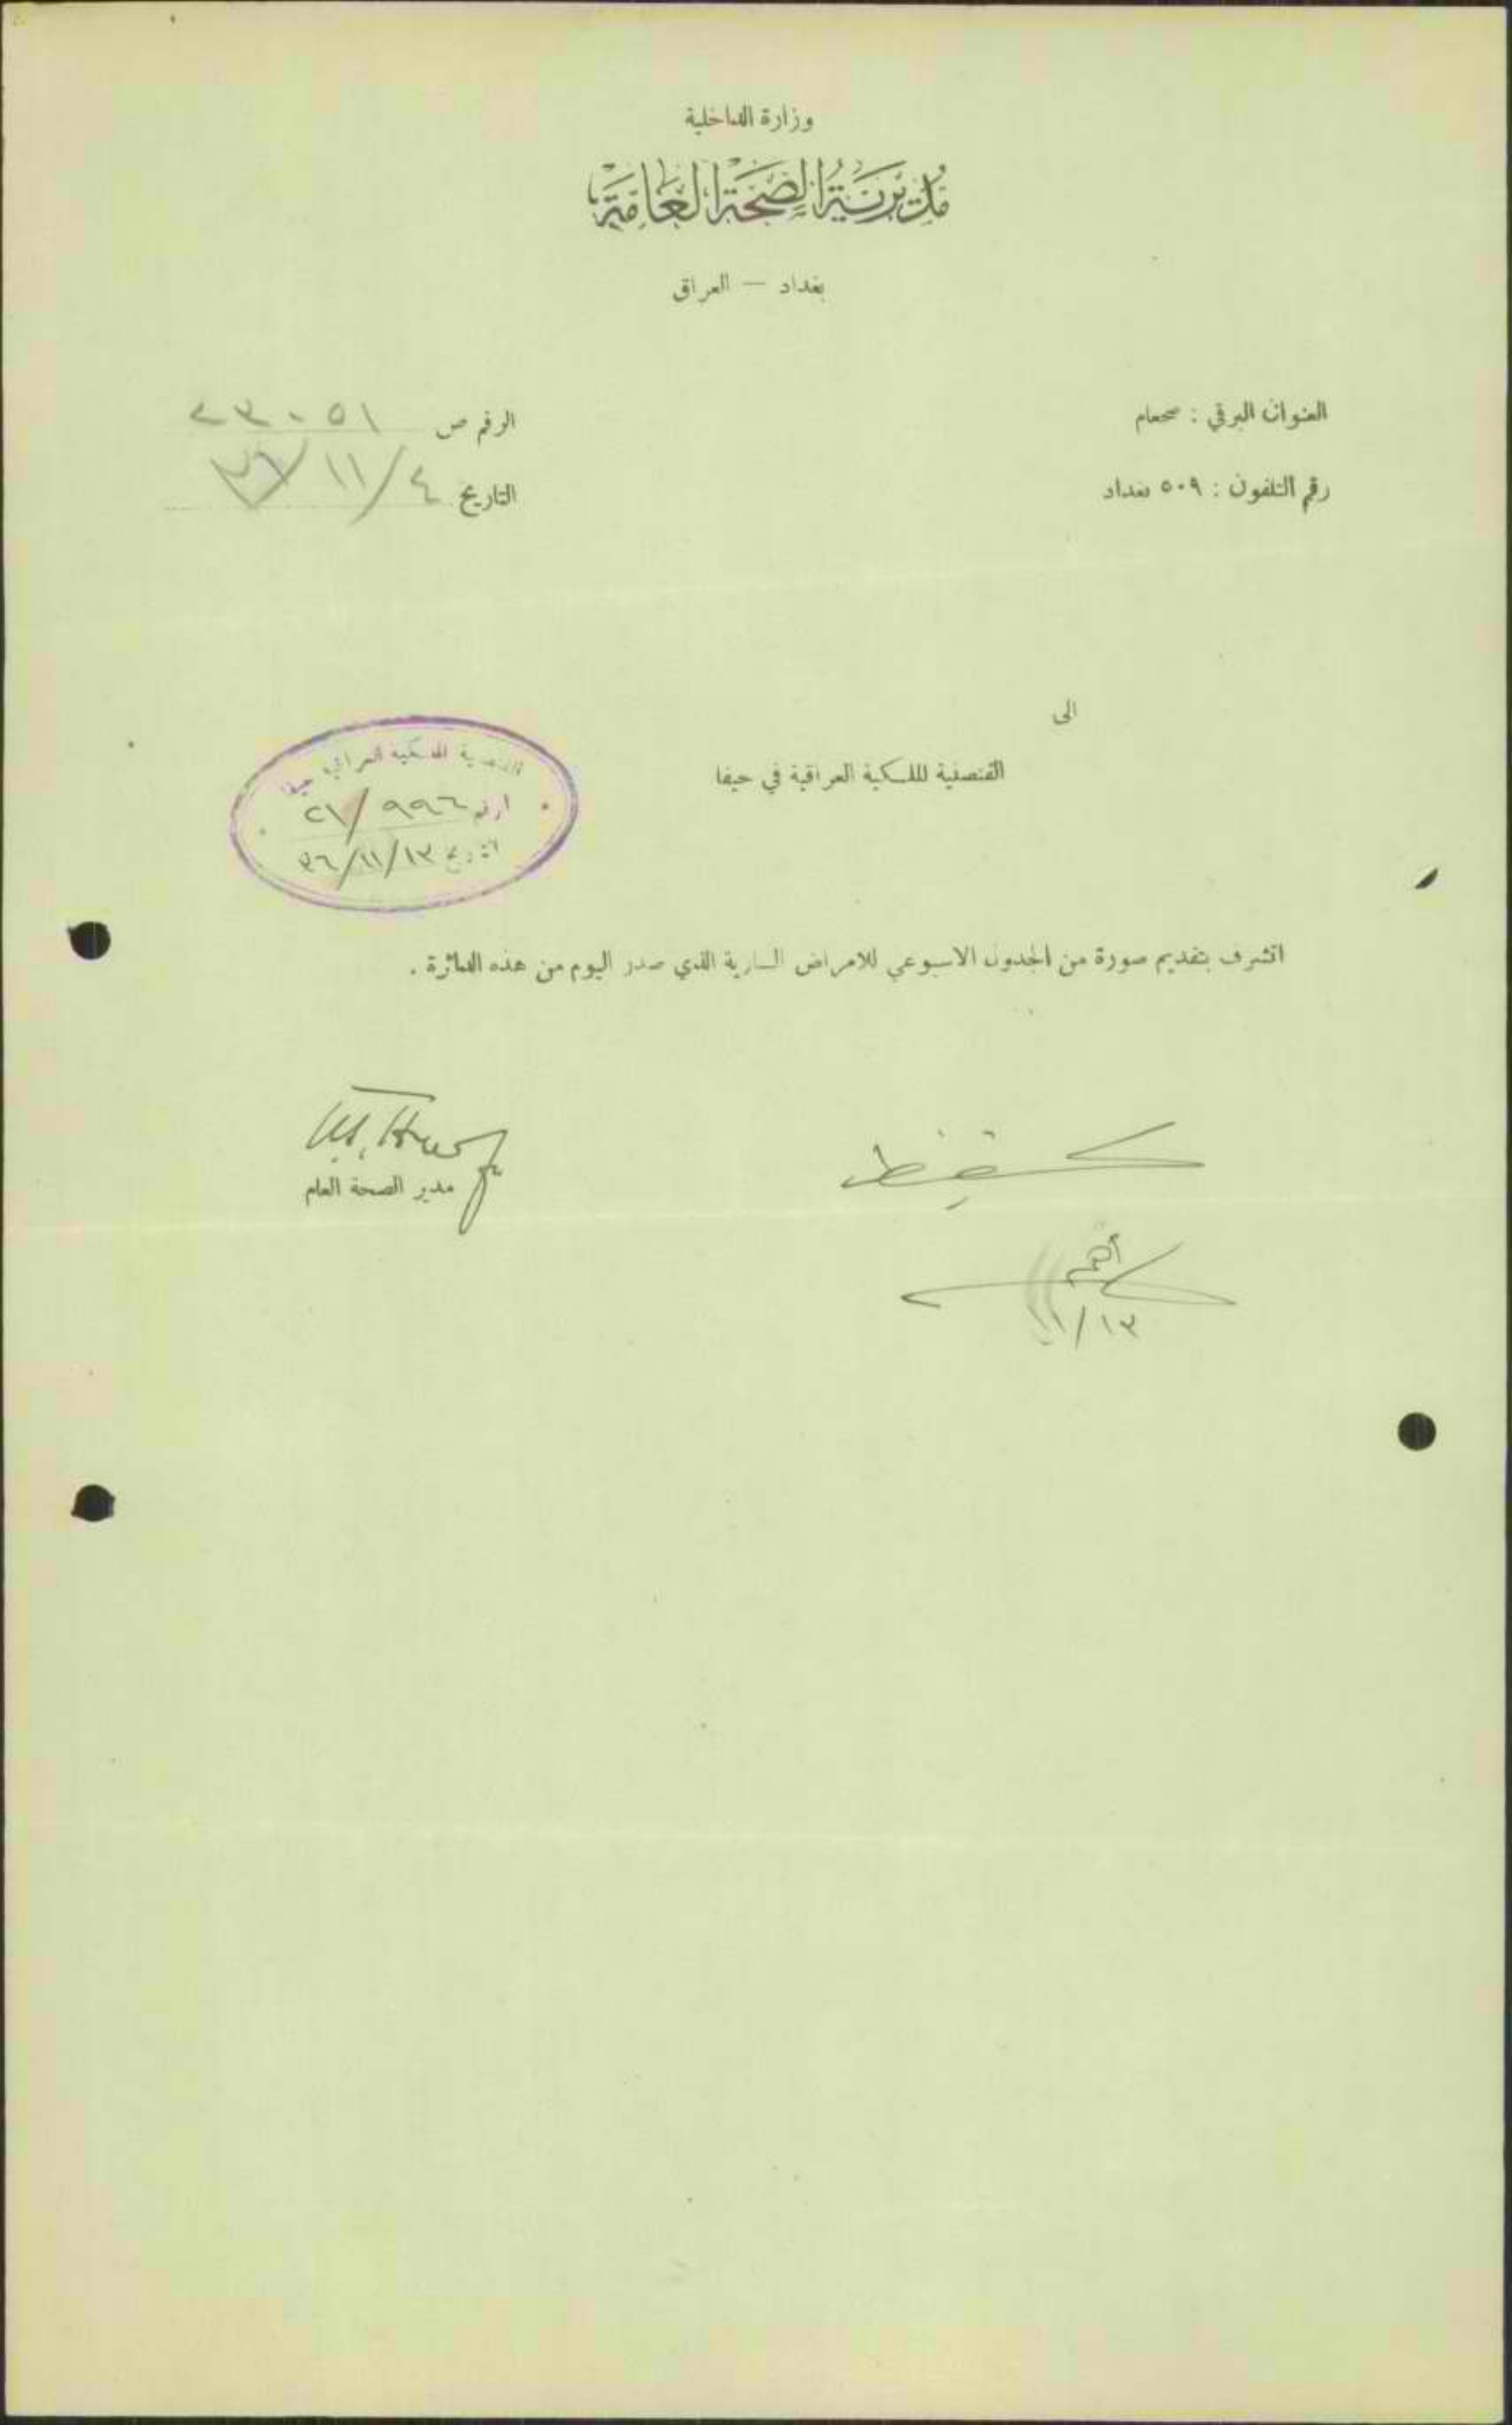 وزارة الداخلية
مديرية الصحة العامة
بغداد — العراق
العنوان البرقي : صحعام
الرقم ص ٢٣٠٥١
رقم التلفون : ٥٠٩ بغداد
التاريخ ٤/١١/٣٦
الى
القنصلية الملكية العراقية في حيفا
القنصلية الملكية العراقية حيفا
الرقم ٩٩٦/٢١
التاريخ ١٣/١١/٣٦
اتشرف بتقديم صورة من الجدول الاسبوعي للامراض السارية الذي صدر اليوم من هذه الدائرة .
مدير الصحة العام
١٣/١١